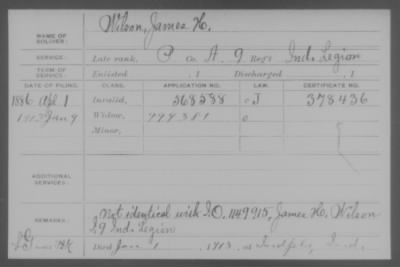 NAME OF SOLDIER: Wilson, James H.
SERVICE: Late rank, P Co. A, 9 Reg't Ind. Legion
TERM OF SERVICE: Enlisted , 1 Discharged , 1
DATE OF FILING. CLASS. APPLICATION NO. LAW. CERTIFICATE NO.
1886 Apl 1 Invalid, 568538 J 378436
1913 Jan 9 Widow,
Minor,
ADDITIONAL SERVICES:
REMARKS: Not identical with I.O. 1149915, James H. Wilson
I, 9 Ind. Legion
Died Jan 1, 1913, at Indpls, Ind.